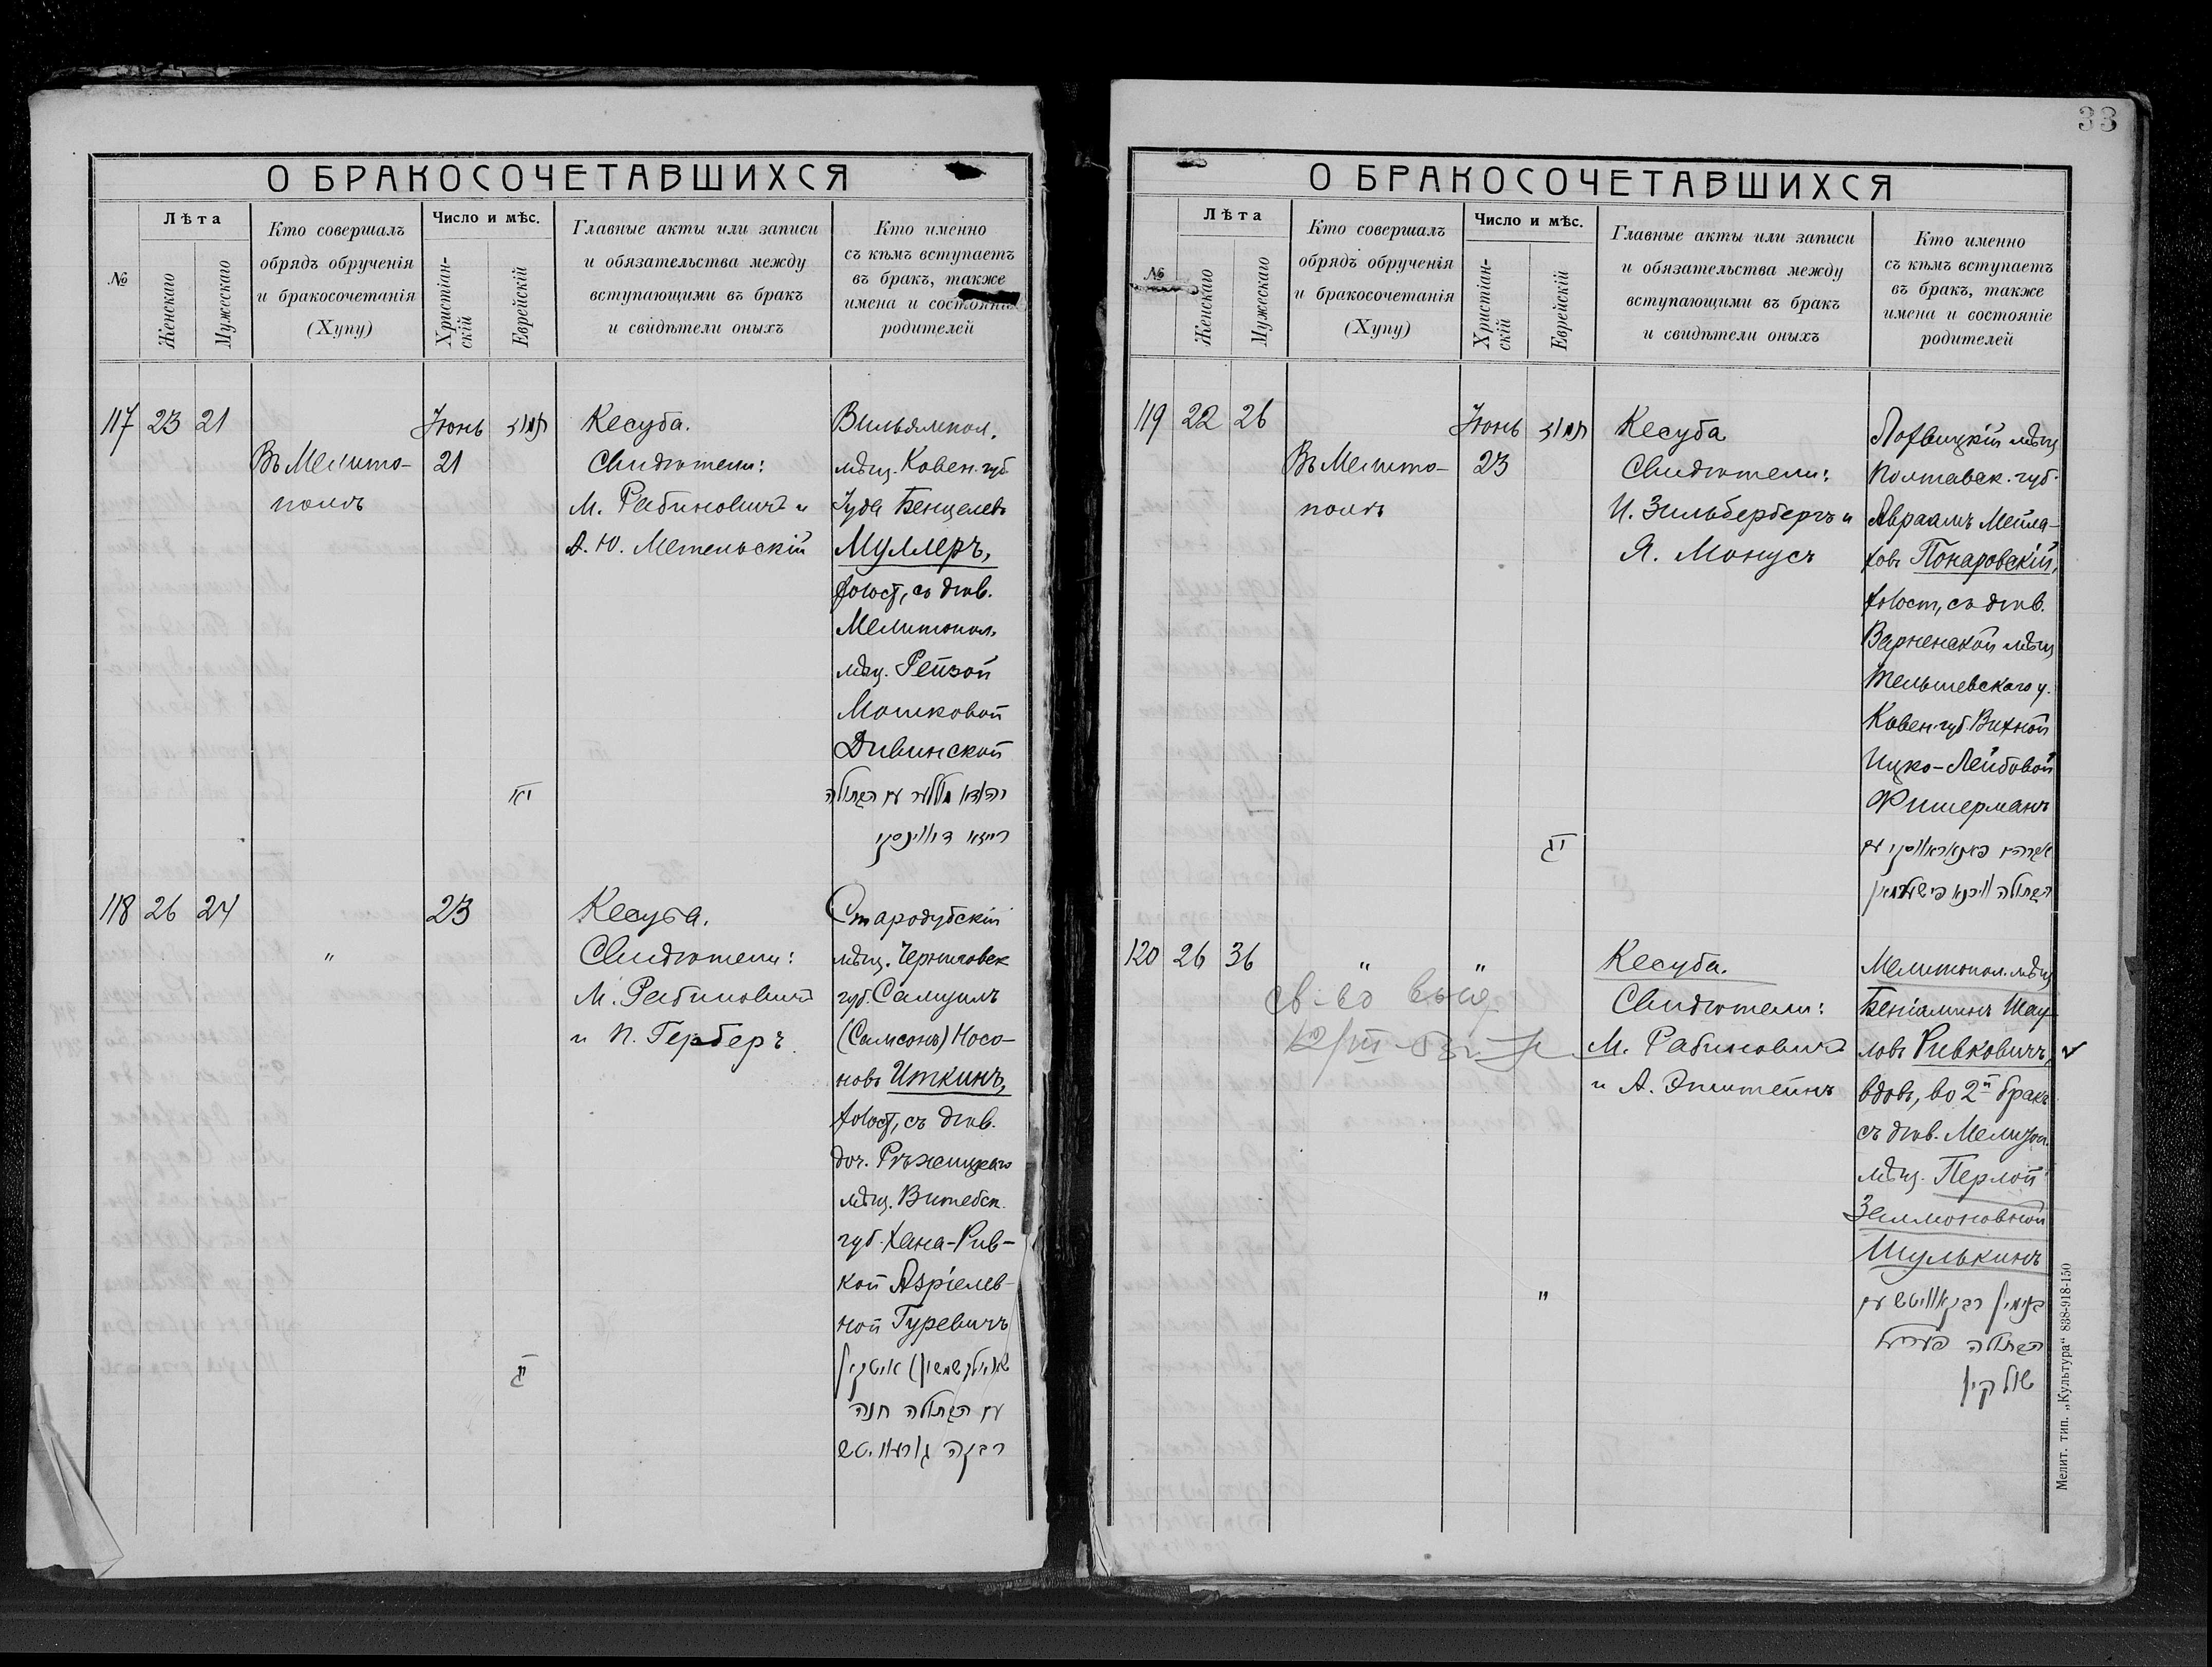 33
О БРАКОСОЧЕТАВШИХСЯ
№
Лѣта
Женскаго
Мужескаго
Кто совершалъ
обрядъ обрученія
и бракосочетанія
(Хупу)
Число и мѣс.
Христіан-
скій
Еврейскій
Главные акты или записи
и обязательства между
вступающими въ бракъ
и свидѣтели оныхъ
Кто именно
съ кѣмъ вступаетъ
въ бракъ, также
имена и состояніе
родителей
117 23 21
Въ Мелито-
поль
Іюнь
21
יא
Кесуба.
Свидѣтели:
М. Рабиновичъ и
А. Ю. Метельскій
Вильямпол.
мѣщ. Ковен. губ.
Іуда Бенцелевъ
Муллеръ,
холост, съ дѣв.
Мелитопол.
мѣщ. Рейзой
Мошковой
Дивинской
עם הבתולה
רייזא דיווינסקי
118 26 24
"
23
יג
Кесуба.
Свидѣтели:
М. Рабиновичъ
и П. Герберъ
Стародубскій
мѣщ. Черниговск
губ. Самуилъ
(Самсонъ) Носо-
новъ Иткинъ,
холост, съ дѣв.
доч. Рѣжицкаго
мѣщ. Витебск.
губ. Хана-Рив-
кой Азріелев-
ной Гуревичъ
איטקין
עם הבתולה חנה
רבקה גורעוויטש
О БРАКОСОЧЕТАВШИХСЯ
№
Лѣта
Женскаго
Мужескаго
Кто совершалъ
обрядъ обрученія
и бракосочетанія
(Хупу)
Число и мѣс.
Христіан-
скій
Еврейскій
Главные акты или записи
и обязательства между
вступающими въ бракъ
и свидѣтели оныхъ
Кто именно
съ кѣмъ вступаетъ
въ бракъ, также
имена и состояніе
родителей
119 22 26
Въ Мелито-
поль
Іюнь
23
יג
Кесуба
Свидѣтели:
И. Зильбербергъ и
Я. Монусъ
Лохвицкій мѣщ
Полтавск. губ.
Авраамъ Мейла-
ховъ Понаровскій,
холост, съ дѣв.
Варненской мѣщ
Тельшевскаго у.
Ковен. губ. Вихной
Ицко-Лейбовой
Фишерманъ
עם
הבתולה וויכנא פישערמאן
120 26 36
"
"
"
св-во выд
Кесуба.
Свидѣтели:
М. Рабиновичъ
и А. Эпштейнъ
Мелитопол. мѣщ
Беніаминъ Шау-
ловъ Ривковичъ,
вдовъ, во 2й бракъ
съ дѣв. Мелитоп.
мѣщ. Перлой
Залмоновной
Шулькинъ
בנימין ריבקאוויטש עם
הבתולה פערעל
שולקין
Мелит. тип. „Культура“ 838-918-150